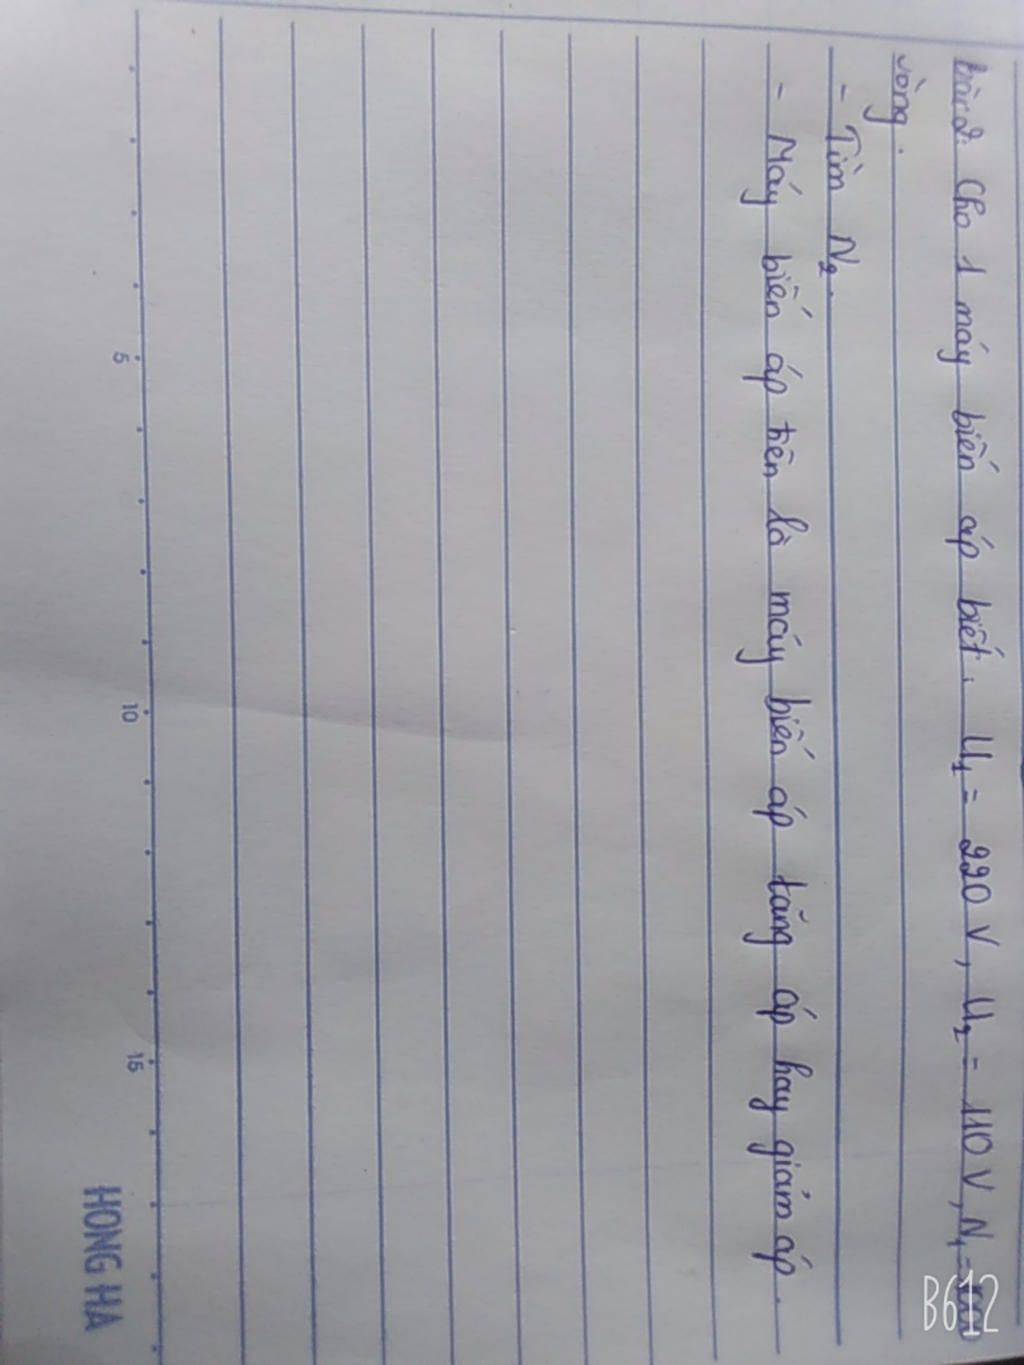 bài 2: Cho 1 máy biến áp biết. U₁ = 220 V, U₂ = 110 V, N₁ =
vòng.
- Tìm N₂.
- Máy biến áp tiên là máy biến áp tăng áp hay giảm áp.
5
10
15
HONG HA
B612